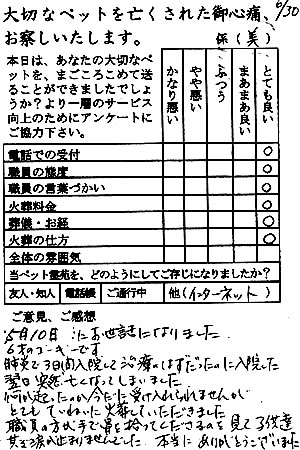 大切なペットを亡くされた御心痛、
6/30
お察しいたします。
係(美)
本日は、あなたの大切なペ
ットを、まごころこめて送
ることができましたでしょ
うか?より一層のサービス
向上のためにアンケートに
ご協力下さい。
かなり悪い
やや悪い
ふつう
まあまあ良い
とても良い
電話での受付 ○
職員の態度 ○
職員の言葉づかい ○
火葬料金 ○
葬儀・お経 ○
火葬の仕方 ○
全体の雰囲気
当ペット霊苑を、どのようにしてご存じになりましたか?
友人・知人 電話帳 ご通行中 他(インターネット)
ご意見、ご感想
5月10日 にお世話になりました
6才のコーギーです
時々で3日間入院して治療のはずだったのに入院した
翌日 突然 亡くなってしまいました
何が起ったのか今だに受け入れられませんが
とても ていねいに 火葬していただきました
職員の方が 手で骨を拾ってくださるのを見て子供達
共々涙が止まりませんでした 本当に ありがとうございました